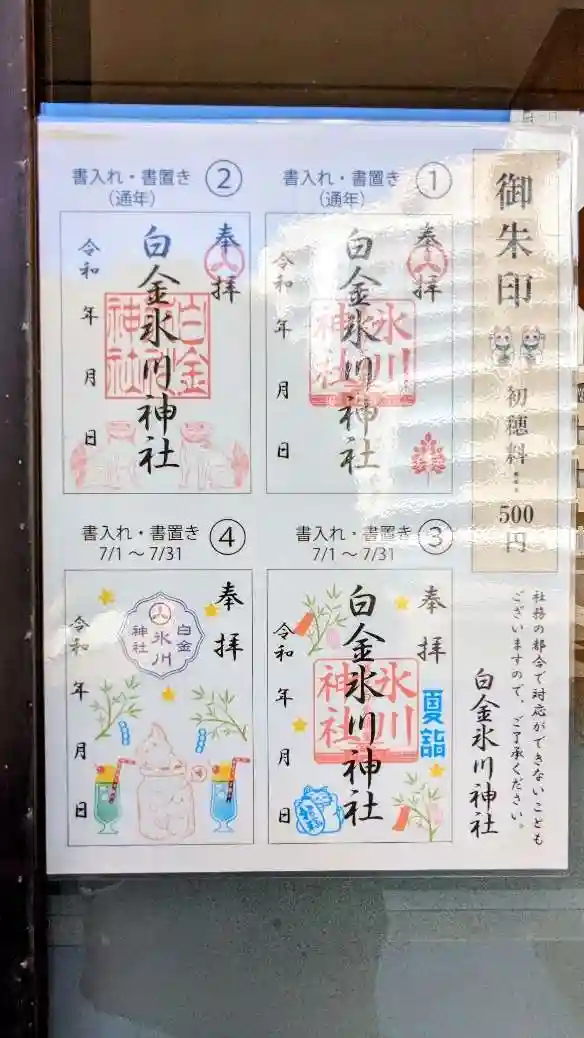 御朱印
初穂料
500
円
①
書入れ・書置き
(通年)
奉拝
白金氷川神社
氷川神社
令和 年 月 日
②
書入れ・書置き
(通年)
奉拝
白金氷川神社
令和 年 月 日
③
書入れ・書置き
7/1～7/31
奉拝
夏詣
白金氷川神社
氷川神社
令和 年 月 日
④
書入れ・書置き
7/1～7/31
奉拝
白金
氷川
神社
令和 年 月 日
社務の都合で対応ができないことも
ございますので、ご了承ください。
白金氷川神社